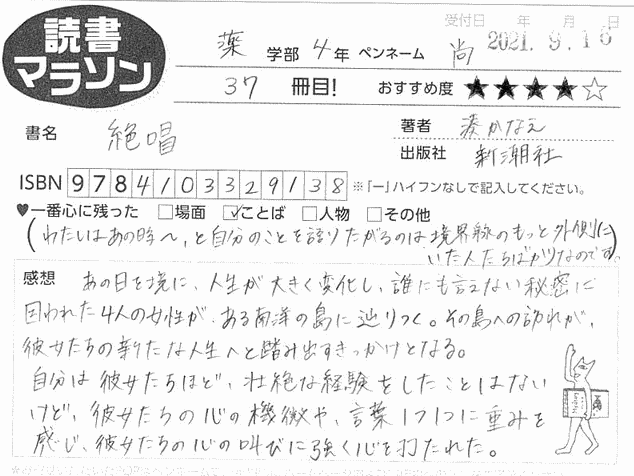 読書
マラソン
受付日 年 月 日
2021.9.16
薬 学部 4 年 ペンネーム 尚
37 冊目! おすすめ度 ★★★★☆
書名 絶唱
著者 湊かなえ
出版社 新潮社
ISBN 9784103329138 ※「ー」ハイフンなしで記入してください。
♥一番心に残った □場面 ☑ことば □人物 □その他
(わたしはあの時へ、と自分のことを語りたがるのは境界線のもっと外側に
いた人たちばかりなのです。)
感想 あの日を境に、人生が大きく変化し、誰にも言えない秘密に
囚われた4人の女性が、ある南洋の島に辿りつく。その島への訪れが、
彼女たちの新たな人生へと踏み出すきっかけとなる。
自分は彼女たちほど、壮絶な経験をしたことはない
けど、彼女たちの心の機微や、言葉1つ1つに重みを
感じ、彼女たちの心の叫びに強く心を打たれた。